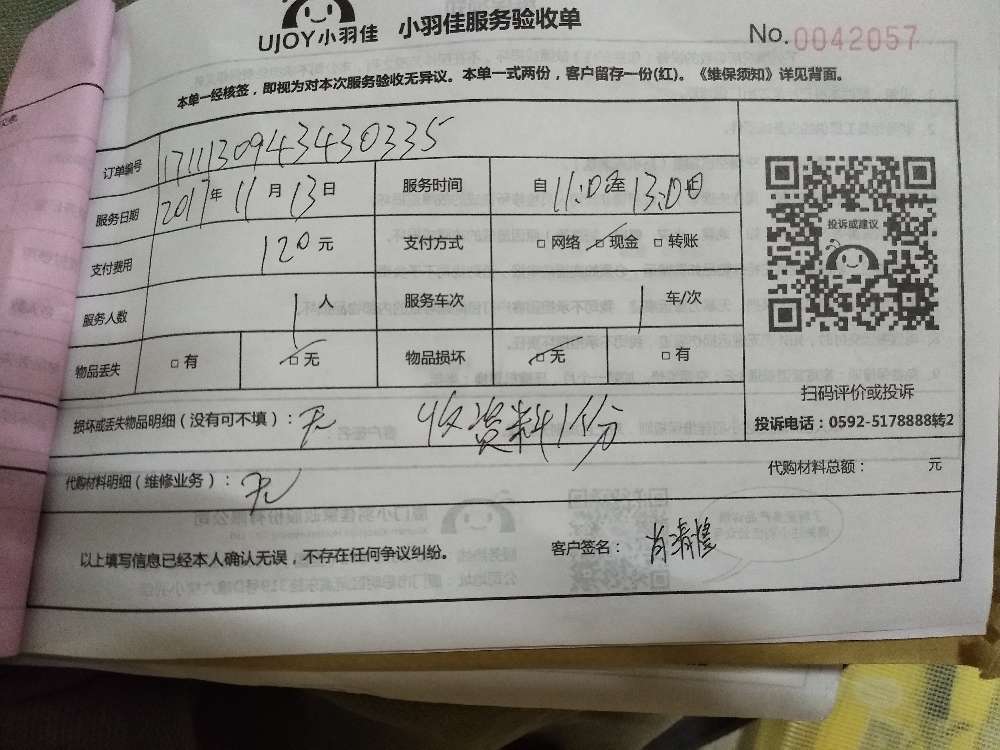 UJOY小羽佳 小羽佳服务验收单
No.0042057
本单一经核签，即视为对本次服务验收无异议。本单一式两份，客户留存一份(红)。《维保须知》详见背面。
订单编号 171113094343430335
服务日期 2017年11月13日 服务时间 自11:00至13:00时
支付费用 120元 支付方式 □网络 □现金 □转账
服务人数 1人 服务车次 1车/次
物品丢失 □有 □无 物品损坏 □无 □有
投诉或建议
扫码评价或投诉
投诉电话：0592-5178888转2
损坏或丢失物品明细（没有可不填）：无 收资料1份
代购材料明细（维修业务）：无 代购材料总额： 元
以上填写信息已经本人确认无误，不存在任何争议纠纷。 客户签名：